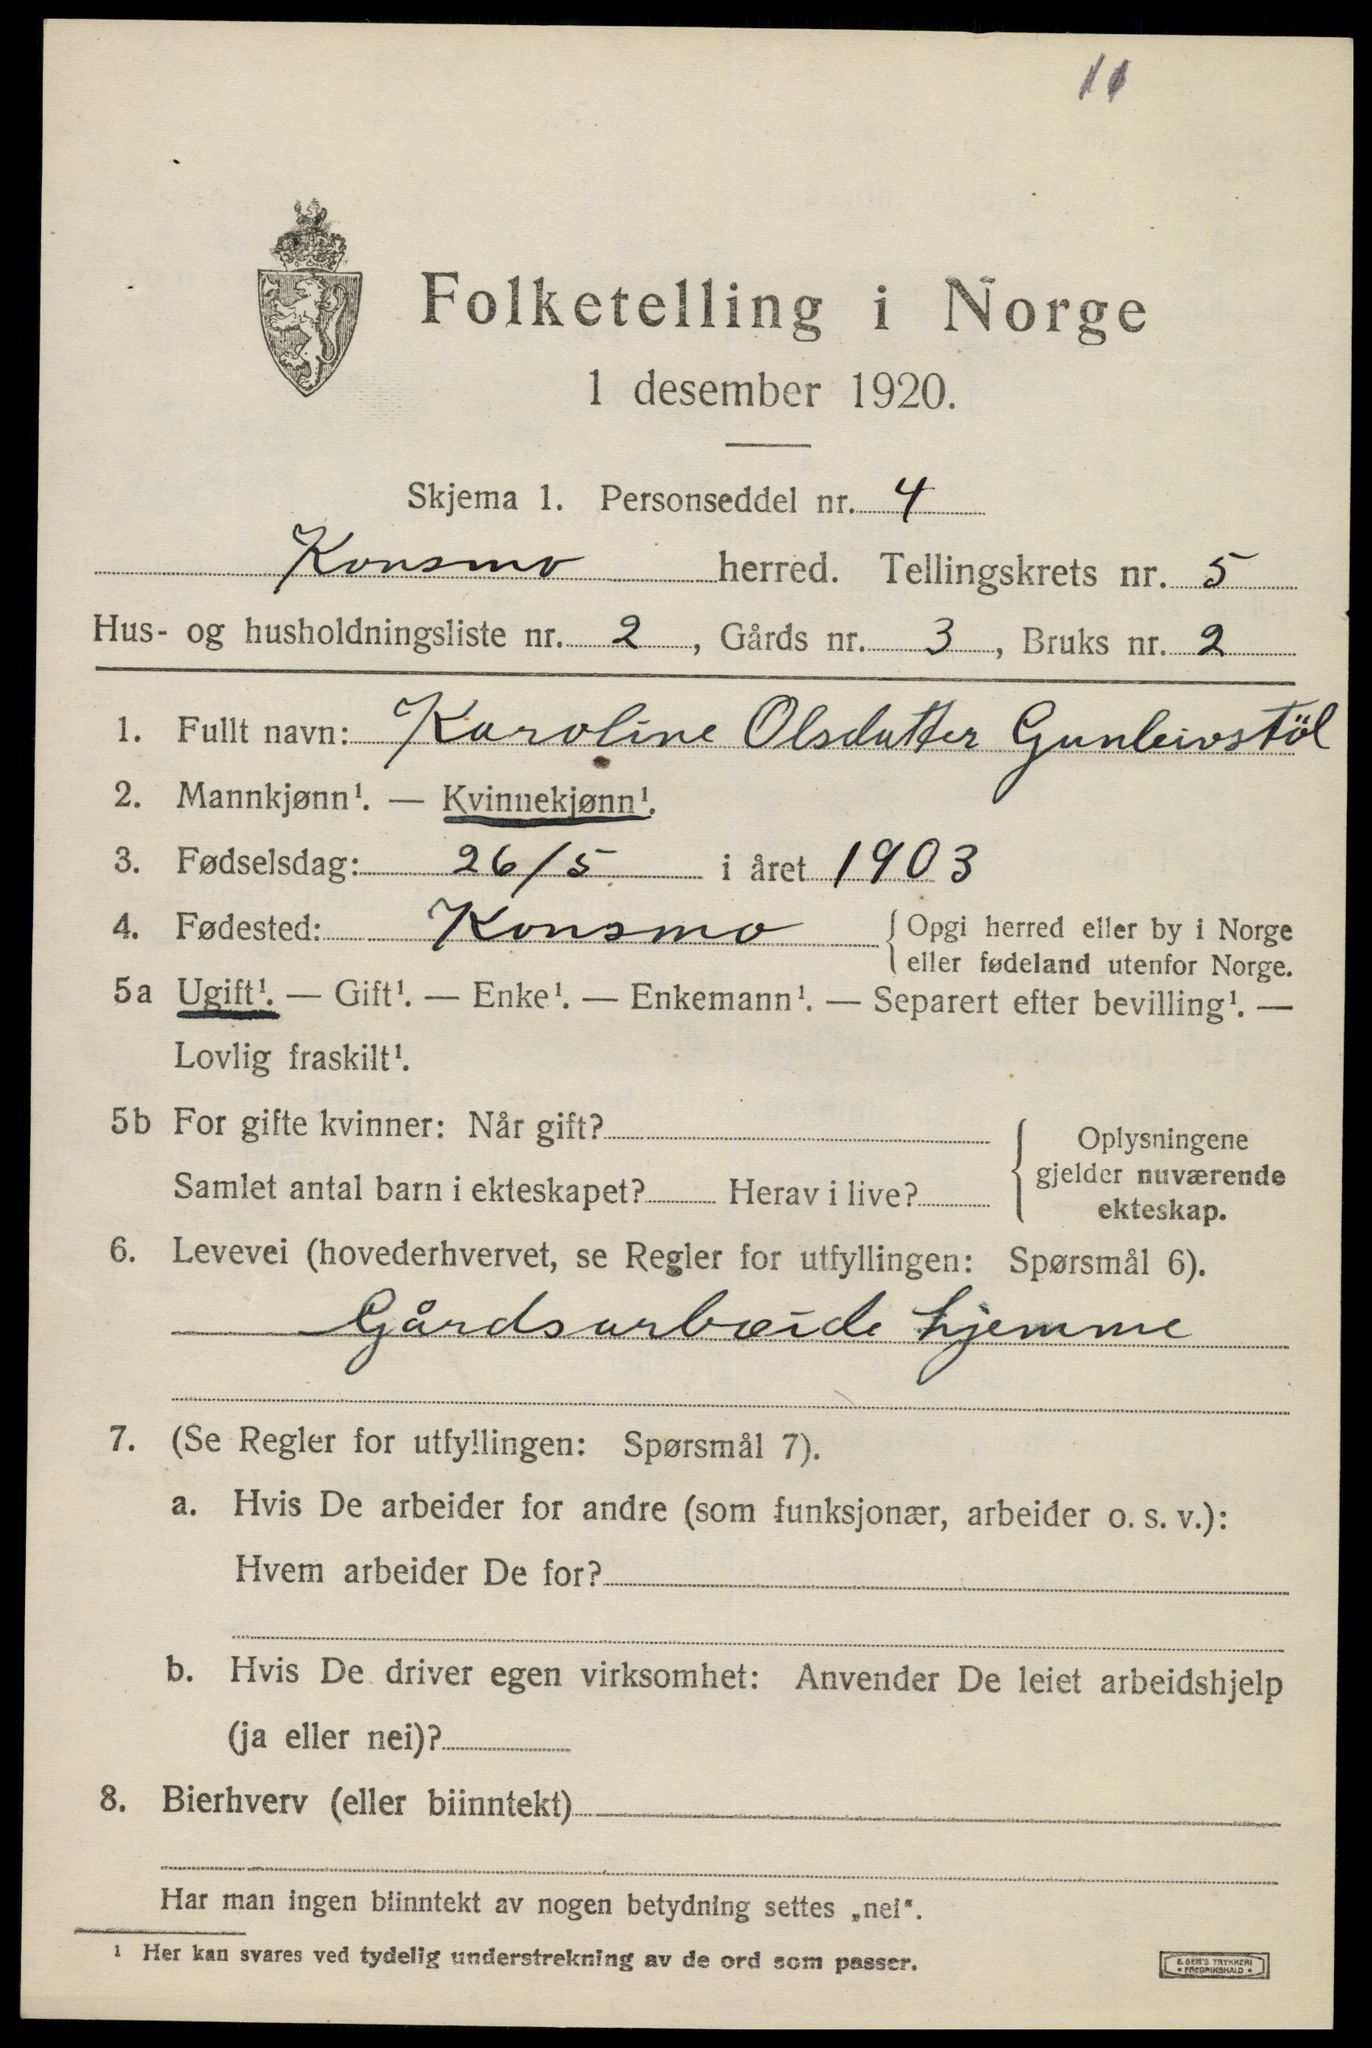 11
Folketelling i Norge
1 desember 1920.
Skjema 1. Personseddel nr. 4
Konsmo herred. Tellingskrets nr. 5
Hus- og husholdningsliste nr. 2, Gårds nr. 3, Bruks nr. 2
1. Fullt navn: Karoline Olsdatter Gunleivstöl
2. Mannkjønn¹. — Kvinnekjønn¹.
3. Fødselsdag: 26/5 i året 1903
4. Fødested: Konsmo { Opgi herred eller by i Norge
eller fødeland utenfor Norge.
5a Ugift¹. — Gift¹. — Enke¹. — Enkemann¹. — Separert efter bevilling¹. —
Lovlig fraskilt¹.
5b For gifte kvinner: Når gift?
Samlet antal barn i ekteskapet? Herav i live?
{ Oplysningene
gjelder nuværende
ekteskap.
6. Levevei (hovederhvervet, se Regler for utfyllingen: Spørsmål 6).
Gårdsarbeide hjemme
7. (Se Regler for utfyllingen: Spørsmål 7).
a. Hvis De arbeider for andre (som funksjonær, arbeider o. s. v.):
Hvem arbeider De for?
b. Hvis De driver egen virksomhet: Anvender De leiet arbeidshjelp
(ja eller nei)?
8. Bierhverv (eller biinntekt)
Har man ingen biinntekt av nogen betydning settes „nei“.
¹ Her kan svares ved tydelig understrekning av de ord som passer.
E. SEM'S TRYKKERI
• FREDRIKSHALD •